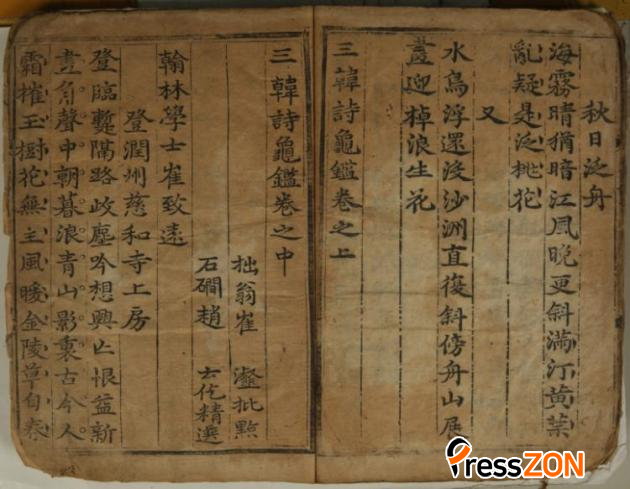 秋日泛舟
海霧晴猶暗江風晩更斜滿汀黃葉
亂疑是泛桃花
又
水鳥浮還沒沙洲直復斜傍舟山展
蓋迎棹浪生花
三韓詩龜鑑卷之上
三韓詩龜鑑卷之中
拙翁崔 瀣批點
石磵趙 云仡精選
翰林學士崔致遠
登潤州慈和寺上房
登臨蹔隔路岐塵吟想興亡恨益新
畫角聲中朝暮浪青山影裏古今人
霜摧玉樹花無主風暖金陵草自春
PressZON